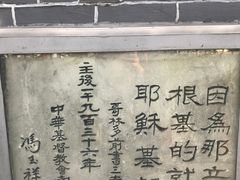 因為那立
根基的就
耶穌基
哥林多前書三
主後一千九百三十六年
中華基督教會
馮玉祥